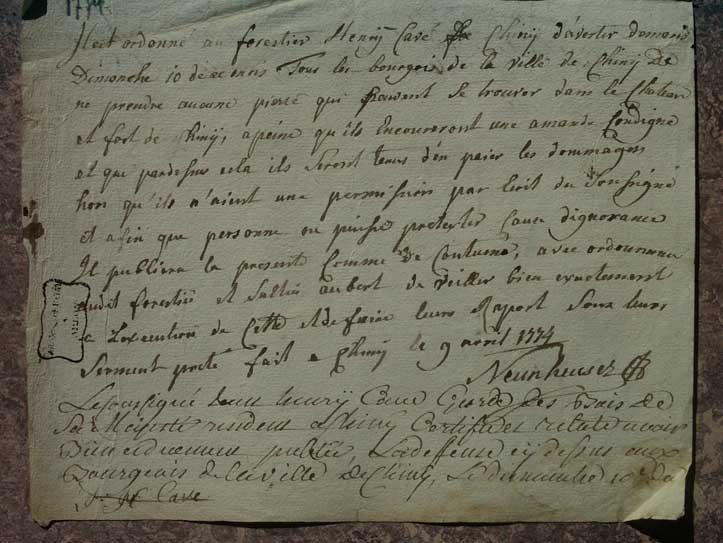 1774.
Il est ordonné au forestier Henry Cavé de Chiny d'avertir demain
Dimanche 10 de ce mois Tous les bourgeois de la ville de Chiny de
ne prendre aucune pierre qui peuvent se trouver dans le Chateau
et fort de Chiny, apeine qu'ils Encoureront une amande Condigne
et que pardessus cela ils seront tenus d'en paier les dommages
hors qu'ils n'aient une permission par Ecrit du Soussigné
Et afin que personne en puisse pretexter Cause d'ignorance
Il publiera la presente Comme de Coutume, avec ordonnance
audit forestier et Aubert de veiller bien exactement
a L'execution de Cette et de faire leurs Raport Sous leurs
Serment preté fait a Chiny le 9 avril 1774
Neunheuser
Le soussigné Jean henry Cave Garde des Bois de
Sa Majesté resident a Chiny Certifie et relate avoir
bien et duement publié, La deffense cy dessus aux
Bourgeois de la ville de Chiny, Le dimanche 10
J: H Cave